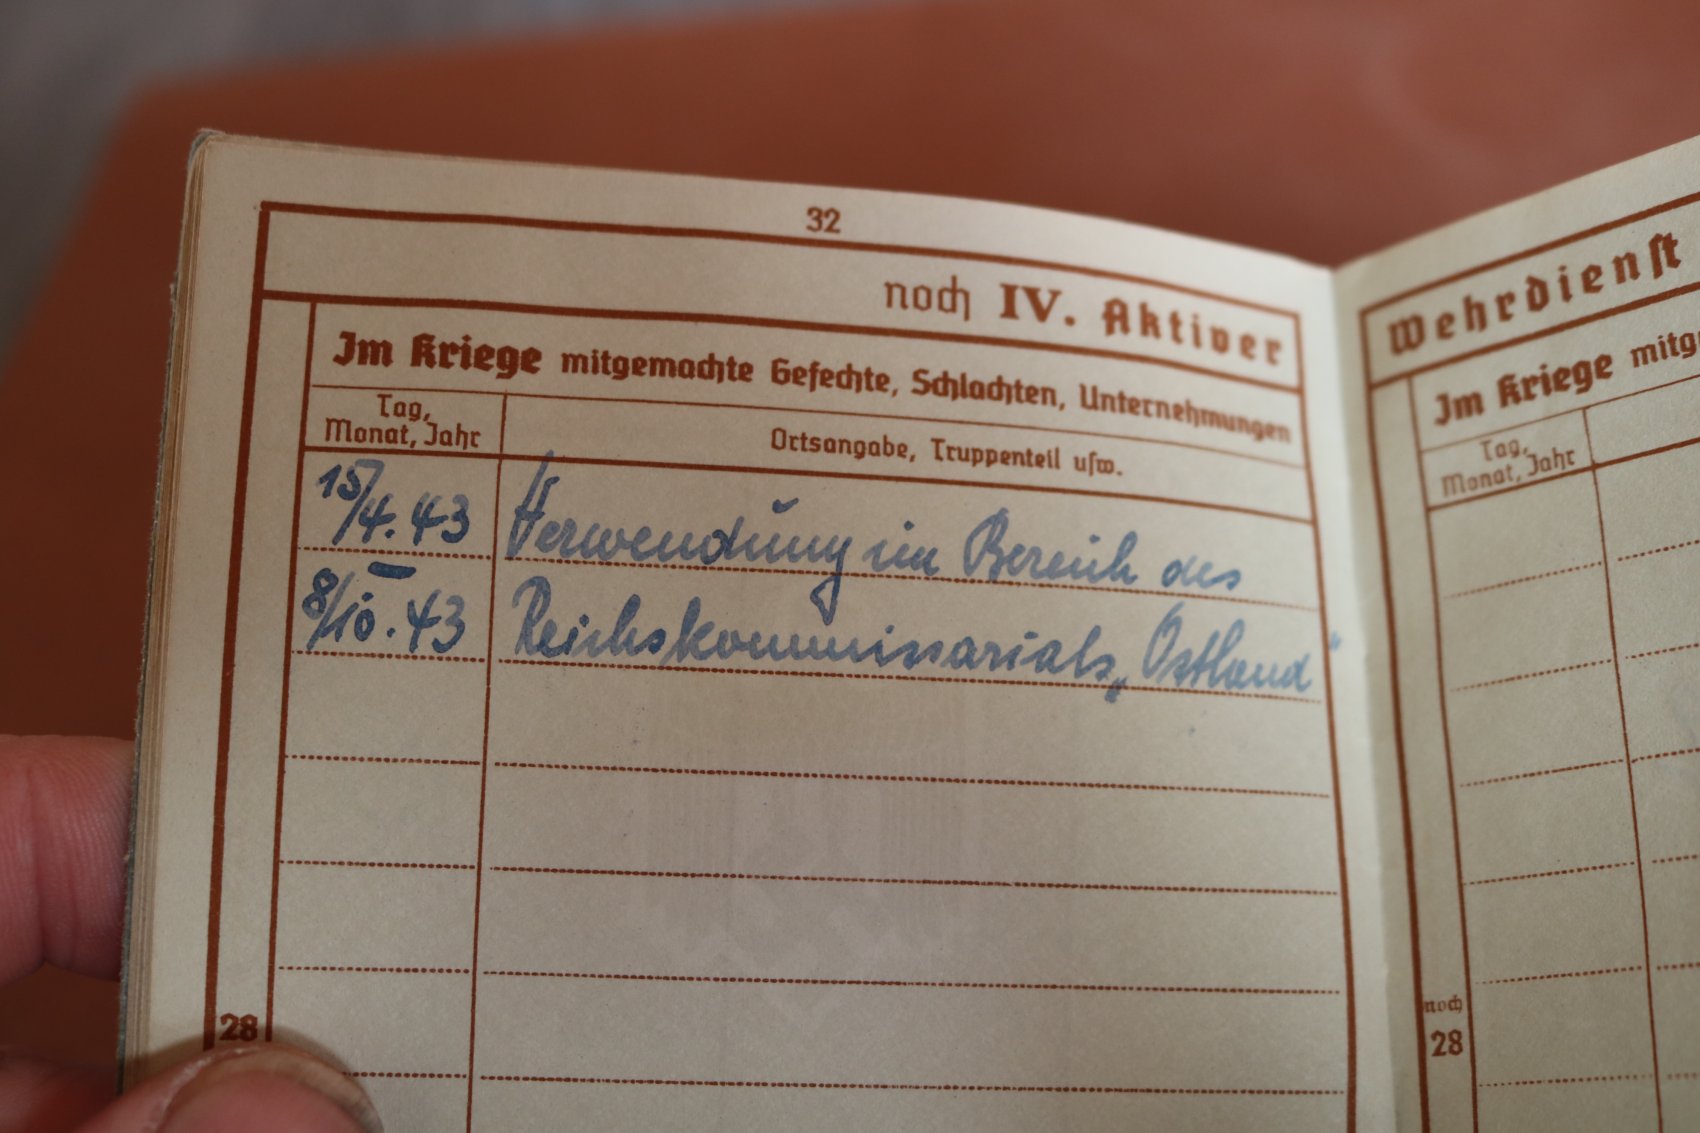 32
noch IV. Aktiver
Im Kriege mitgemachte Gefechte, Schlachten, Unternehmungen
Tag,
Monat, Jahr
Ortsangabe, Truppenteil usw.
15/4.43 Verwendung im Bereich des
–
8/10.43 Reichskommissariats „Ostland"
28
Wehrdienst
Im Kriege mitg
Tag,
Monat, Jahr
noch
28